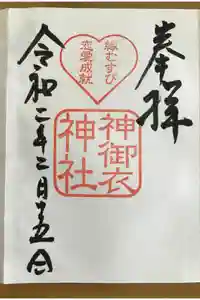 奉拝
縁むすび
恋愛成就
神御衣
神社
令和二年二月廿五日